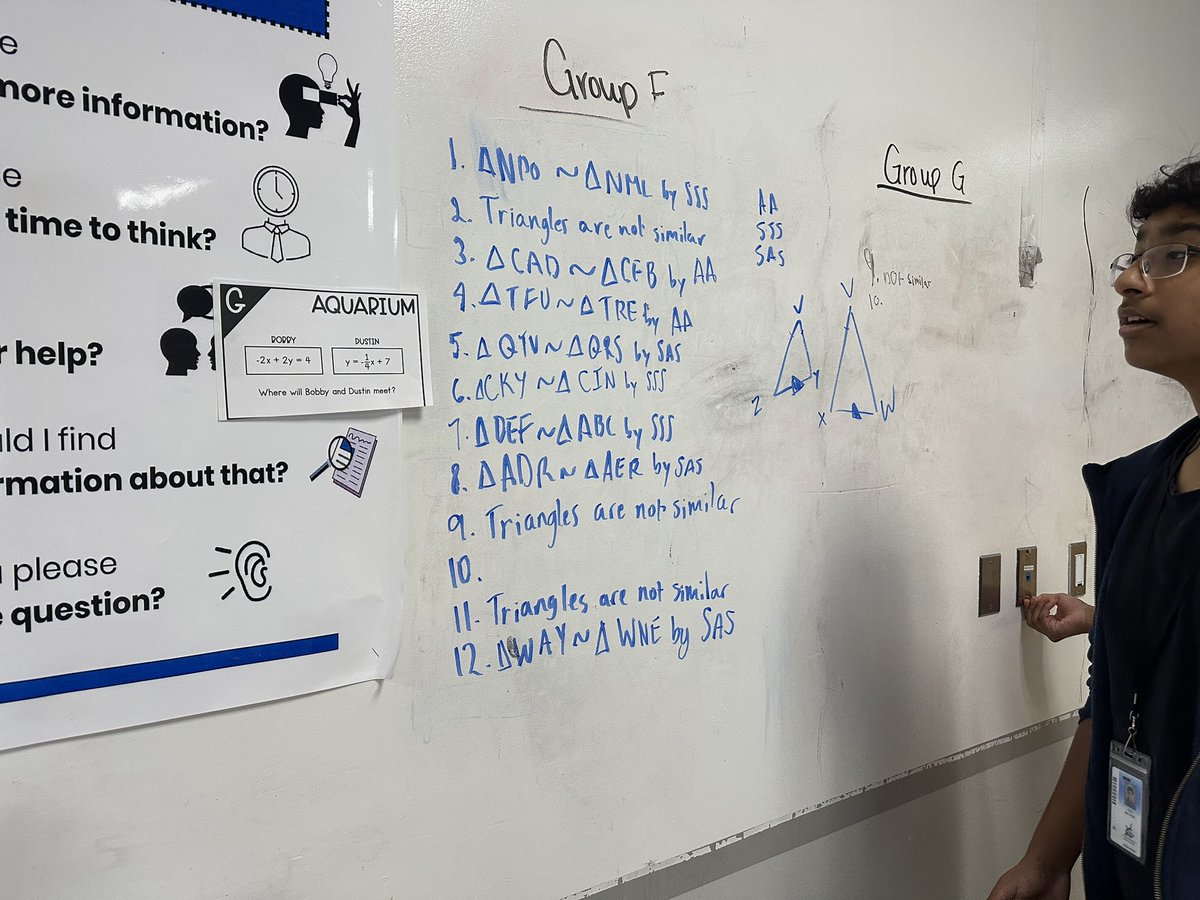 e
more information?
e
time to think?
r help?
uld I find
rmation about that?
u please
e question?
G
AQUARIUM
BOBBY
DUSTIN
-2x + 2y = 4
y = -1/4x + 7
Where will Bobby and Dustin meet?
Group F
1. ΔNPO ~ ΔNML by SSS
2. Triangles are not similar
3. ΔCAD ~ ΔCEB by AA
4. ΔTFU ~ ΔTRE by AA
5. ΔQTV ~ ΔQRS by SAS
6. ΔCKY ~ ΔCIN by SSS
7. ΔDEF ~ ΔABC by SSS
8. ΔADR ~ ΔAER by SAS
9. Triangles are not similar
10.
11. Triangles are not similar
12. ΔWAY ~ ΔWNE by SAS
AA
SSS
SAS
V
Z
Y
V
X
W
Group G
9. not similar
10.